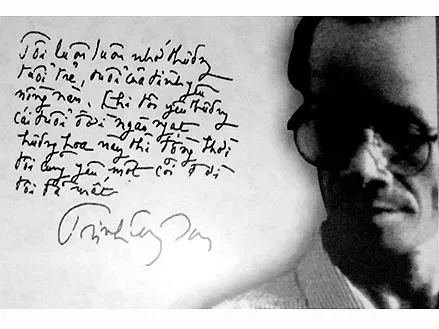 Tôi luôn luôn nhớ thương
tuổi trẻ, tuổi của tình yêu
nồng nàn. Khi tôi yêu thương
cái tuổi ngào ngạt
hương hoa này thì đồng thời
tôi cũng yêu một cõi đời
tôi đã mất
Trịnh Công Sơn